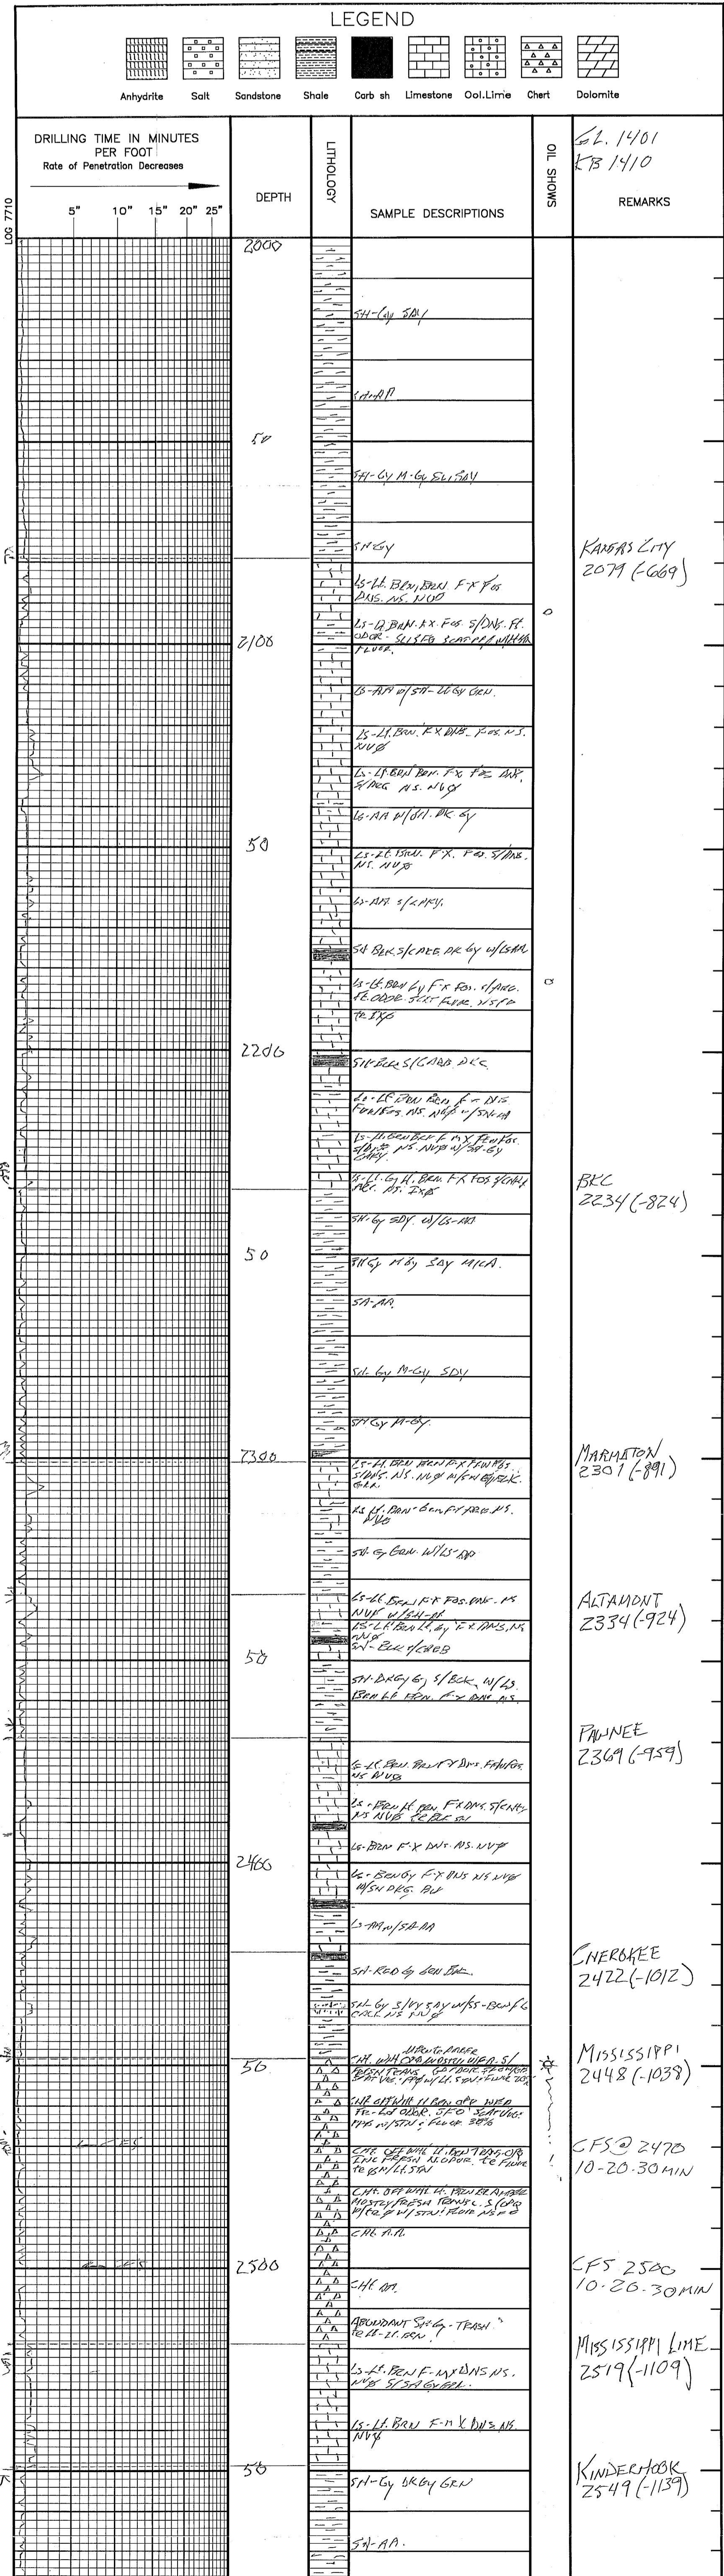 LEGEND
Anhydrite Salt Sandstone Shale Carb sh Limestone Ool.Lime Chert Dolomite
DRILLING TIME IN MINUTES
PER FOOT
Rate of Penetration Decreases
5" 10" 15" 20" 25"
LOG 7710
DEPTH
LITHOLOGY
SAMPLE DESCRIPTIONS
OIL SHOWS
GL. 1401
KB 1410
REMARKS
2000
SH-Gy SDY
SH-AA
50
SH-Gy M-Gy SLI SDY
SH Gy
KANSAS CITY
2079 (-669)
LS-Lt. BRN, BRN. F-X FOS
DNS. NS. NVØ
LS-Lt. BRN. FX. FOS. S/DNS. Ft.
ODOR-
2100
FLUOR.
LS-AA w/SH-Lt Gy GRN.
LS-Lt. BRN. FX DNS. FOS. NS.
NVØ
LS-Lt. BRN BRN. FX FOS DNS.
S/ARG NS. NVØ
LS-AA W/SH. DK Gy
50
LS-Lt. BRN. F-X. FOS. S/DNS.
NS. NVØ
LS-AA S/CHKY.
SH BLK S/CARB DK Gy W/LS AA
LS-Lt. BRN Gy F-X FOS. S/ARG.
Ft. ODOR. SCAT FLUOR. NSFO
tr IXØ
2200
SH-BLK S/CARB
LS-Lt BRN BRN F-X DNS
FEW FOS. NS. NVØ w/SH-AA
LS-Lt. BRN BRN F-MX FEW FOS.
S/DNS NS. NVØ W/SH-Gy
LS-Lt. Gy Lt. BRN. F-X FOS S/CHKY
NS. IXØ
BKC
2234 (-824)
SH-Gy SDY. W/LS-AA
50
SH Gy M Gy SDY MICA.
SH-AA.
SH-Gy M-Gy SDY
SH Gy M-Gy.
2300
MARMATON
2301 (-891)
LS-Lt. BRN BRN F-X FEW FOS.
S/DNS. NS. NVØ W/SH Gy BLK.
GRN
LS Lt. BRN-BRN FX ARG. NS.
NVØ
SH-Gy GRN. W/LS-AA
ALTAMONT
2334 (-924)
LS-Lt BRN F-X FOS. DNS. NS
NVØ w/SH-AA
LS-Lt BRN Lt. Gy F-X DNS, NS
NVØ
SH-BLK S/CARB
50
SH-DKGy Gy S/BLK, W/LS
BRN Lt BRN. F-X DNS NS.
PAWNEE
2369 (-959)
LS-Lt. BRN. BRN F-X DNS. FEW FOS.
NS NVØ
LS-BRN Lt BRN F-X DNS. S/CHT.
NS NVØ tr BLK SH
LS-BRN F-X DNS. NS. NVØ
2400
LS-BRN Gy F-X DNS NS NVØ
W/SH DKG. BLK
LS-AA w/SH-AA
CHEROKEE
2422 (-1012)
SH-RED Gy GRN BLK.
SH-Gy S/VY SDY W/SS-BRN FG
CALC NS NVØ
50
MISSISSIPPI
2448 (-1038)
CHT. WHT OPA MOSTLY WEA. S/
FRESH TRANS.
CHT OFF WHT Lt BRN OPA WEA
FR-Gd ODOR. SFO SCAT VUG.
PPØ W/STN & FLUOR 30%
CFS
CHT. OFF WHT. Lt. BRN TRANS-OPA
INC FRESH N.ODOR. tr FLUOR
tr W/Lt. STN
CFS @ 2470
10-20-30 MIN
CHT. OFF WHT. Lt. BRN tr AMBER
MOSTLY FRESH TRANS L. S/OPA
W/tr Ø W/STN & FLUOR NSFO
CHT A.A.
CFS
2500
CFS 2500
10-20-30 MIN
CHT AA.
ABUNDANT SH-Gy-TRASH"
tr LS-Lt. BRN.
MISSISSIPPI LIME
2519 (-1109)
LS-Lt. BRN F-MX DNS NS.
NVØ S/SH Gy GRN.
LS-Lt. BRN F-M X DNS NS.
NVØ
50
KINDERHOOK
2549 (-1139)
SH-Gy DKGy GRN
SH-AA.